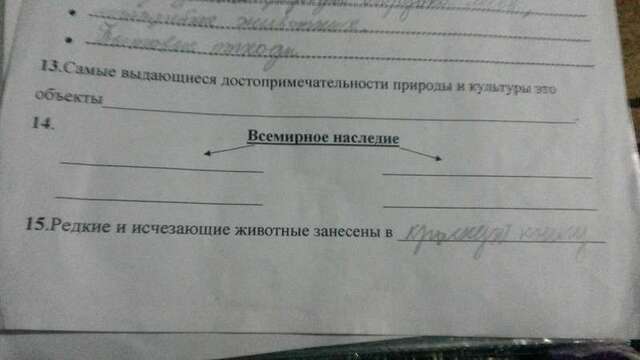 животных.
Бытовые отходы.
13.Самые выдающиеся достопримечательности природы и культуры это
объекты
14.
Всемирное наследие
15.Редкие и исчезающие животные занесены в красную книгу